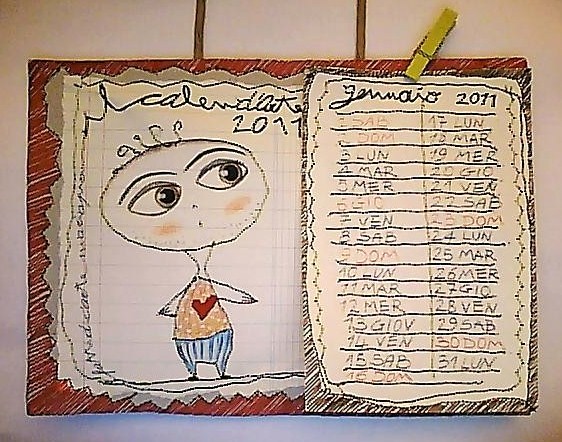 2011
gennaio 2011
1 SAB
2 DOM
3 LUN
4 MAR
5 MER
6 GIO
7 VEN
8 SAB
9 DOM
10 LUN
11 MAR
12 MER
13 GIOV
14 VEN
15 SAB
16 DOM
17 LUN
18 MAR
19 MER
20 GIO
21 VEN
22 SAB
23 DOM
24 LUN
25 MAR
26 MER
27 GIO
28 VEN
29 SAB
30 DOM
31 LUN